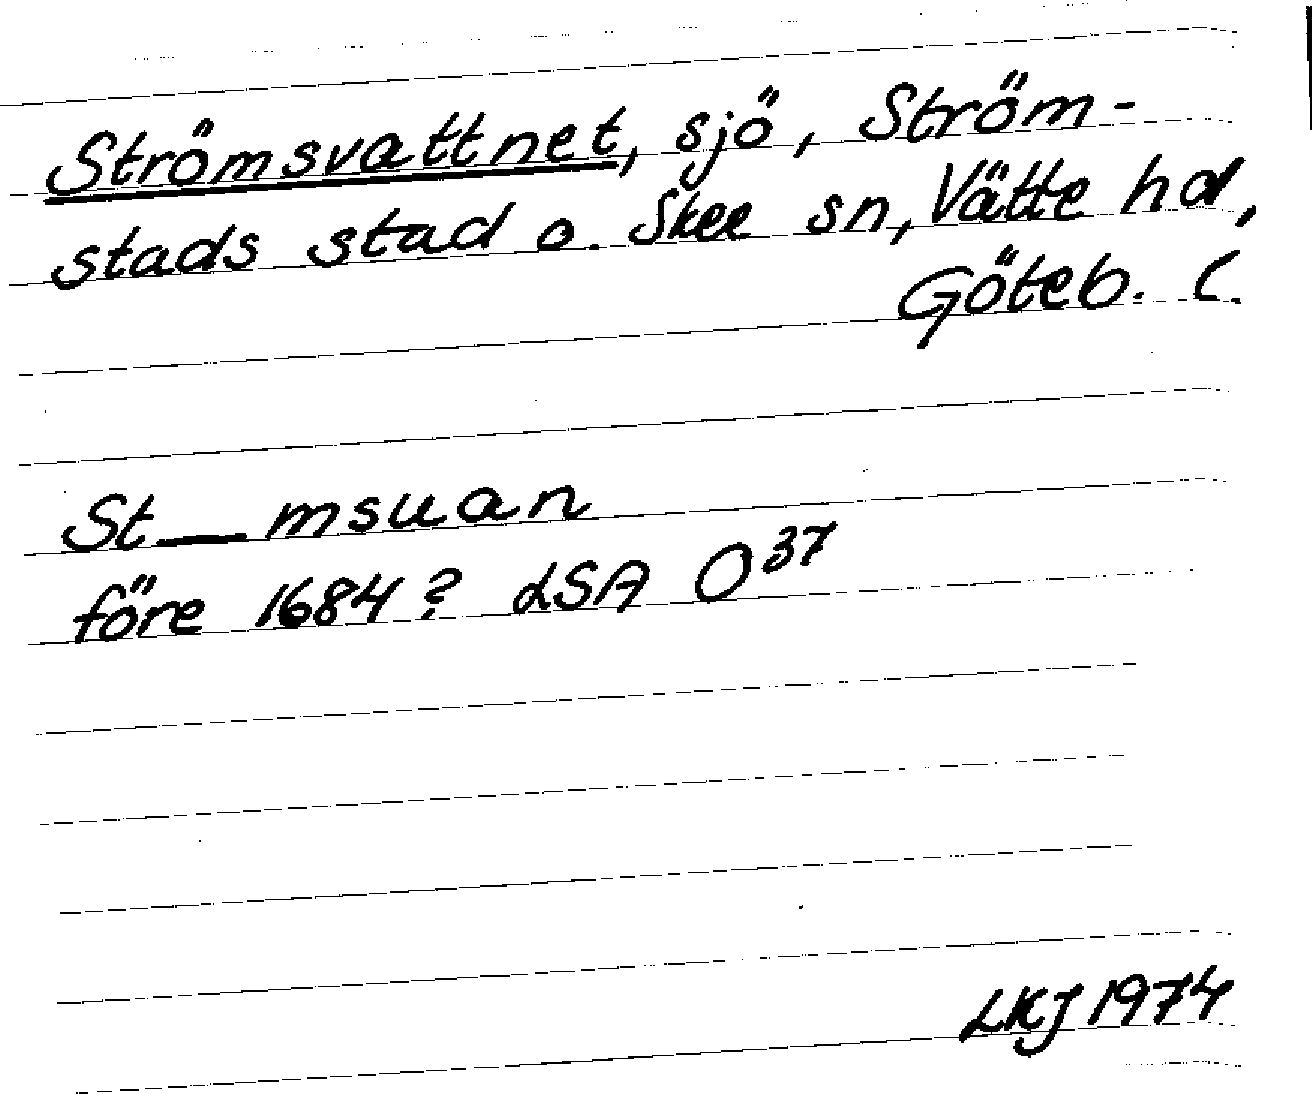 Strömsvattnet, sjö, Ström-
stads stad o. Skee sn, Vätte hd,
Göteb. l.
St__msuan
före 1684? LSA O 37
LKJ 1974